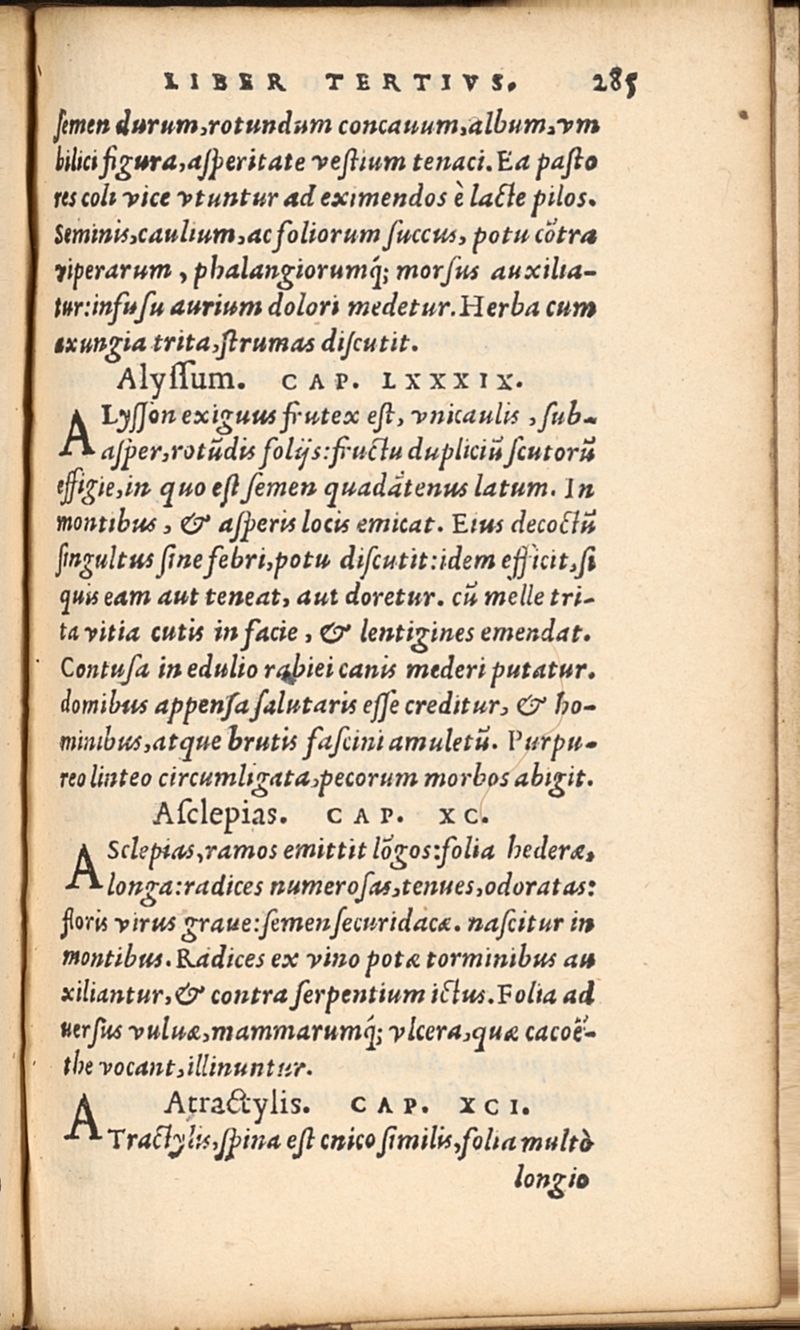 LIBER TERTIVS. 285
ſemen durum,rotundum concauum,album,vm
bilici figura,aſperitate veſtium tenaci.Ea paſto
res coli vice vtuntur ad eximendos è lacte pilos.
Seminis,caulium,ac foliorum ſuccus, potu cõtra
viperarum , phalangiorumq́; morſus auxilia-
tur:infuſu aurium dolori medetur.Herba cum
axungia trita,ſtrumas diſcutit.
Alyſſum. CAP. LXXXIX.
ALyſſon exiguus frutex eſt, vnicaulis , ſub-
aſper,rotũdis folijs:fructu dupliciũ ſcutorũ
effigie,in quo eſt ſemen quadãtenus latum. In
montibus , & aſperis locis emicat. Eius decoctũ
ſingultus ſine febri,potu diſcutit:idem efficit,ſi
quis eam aut teneat, aut doretur. cũ melle tri-
ta vitia cutis in facie , & lentigines emendat.
Contuſa in edulio rabiei canis mederi putatur.
domibus appenſa ſalutaris eſſe creditur, & ho-
minibus,atque brutis faſcini amuletũ. Purpu-
reo linteo circumligata,pecorum morbos abigit.
Aſclepias. CAP. XC.
ASclepias,ramos emittit lõgos:folia hederæ,
longa:radices numeroſas,tenues,odoratas:
floris virus graue:ſemen ſecuridacæ. naſcitur in
montibus.Radices ex vino potæ torminibus au
xiliantur,& contra ſerpentium ictus.Folia ad
uerſus vuluæ,mammarumq́; vlcera,quæ cacoë-
the vocant,illinuntur.
Atractylis. CAP. XCI.
ATractylis,ſpina eſt cnico ſimilis,folia multò
longio